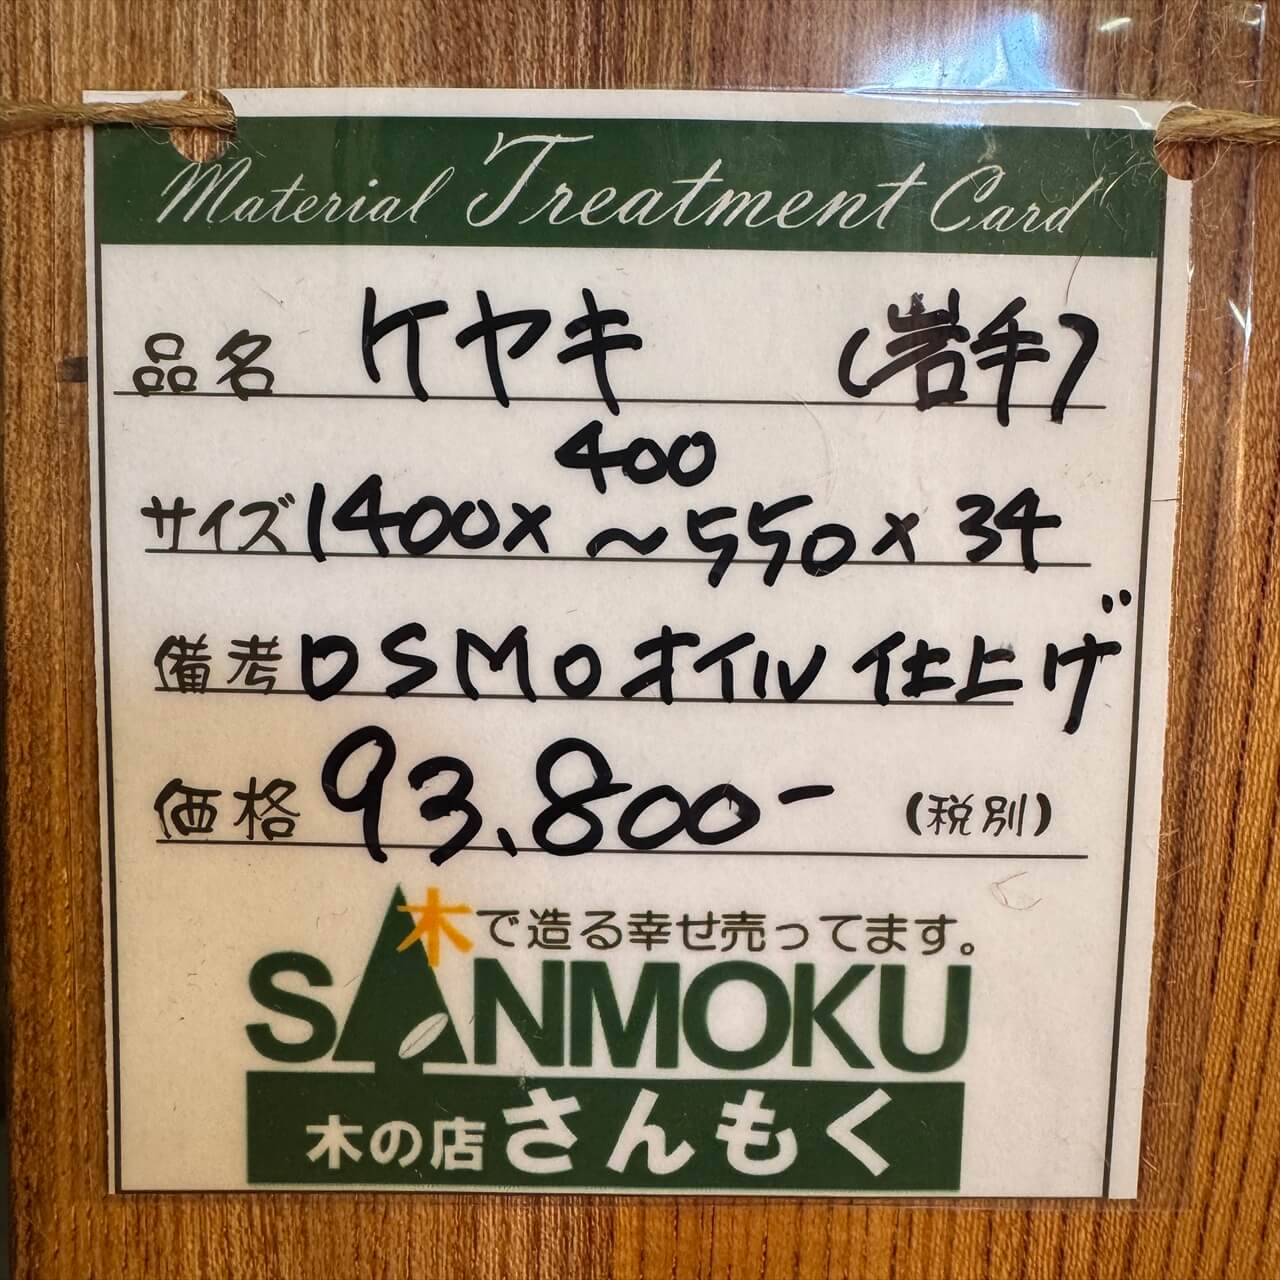 Material Treatment Card
品名 ケヤキ (岩手)
400
サイズ 1400× ~550×34
備考 OSMOオイル仕上げ
価格 93,800- (税別)
木で造る幸せ売ってます。
SANMOKU
木の店さんもく